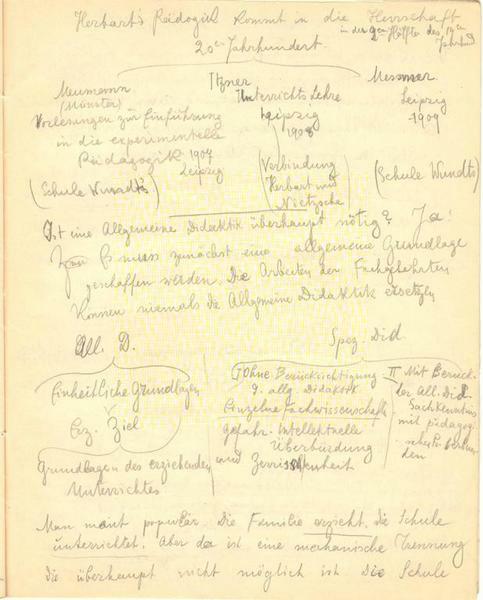 Herbarts Pädogik kommt in die Herrschaft
in der 2ten Hälfte des 19ten Jahrhund
20tes Jahrhundert.
Meumann Itzner Messmer
(Münster) Unterrichts Lehre Leipzig
Vorlesungen zur Einführung Leipzig 1909
in die experimentelle 1908
Pädagogik 1907 (Verbindung
Leipzig Herbart mit (Schule Wundts)
(Schule Wundt's) Nietzsche)
Ist eine Allgemeine Didaktik überhaupt nötig? Ja!
Es muss zunächst eine allgemeine Grundlage
geschaffen werden. Die Arbeiten der Fachgelehrten
können niemals die Allgemeine Didaktik ersetzen
All. D. Spez. Did.
Einheitliche Grundlagen
Erz. Ziel
Grundlagen des erziehenden
Unterrichtes
I Ohne Berücksichtigung
d. allg. Didaktik
Einzelne Fachwissenschaft
gefahr. Intellektuelle
Überbürdung
und Zerrissenheit
II Mit Berück
der All. Did.
Sachkenntnis
mit pädagog
Man meint populär. Die Familie erzieht, die Schule
unterrichtet. Aber da ist eine mechanische Trennung
die überhaupt nicht möglich ist. Die Schule